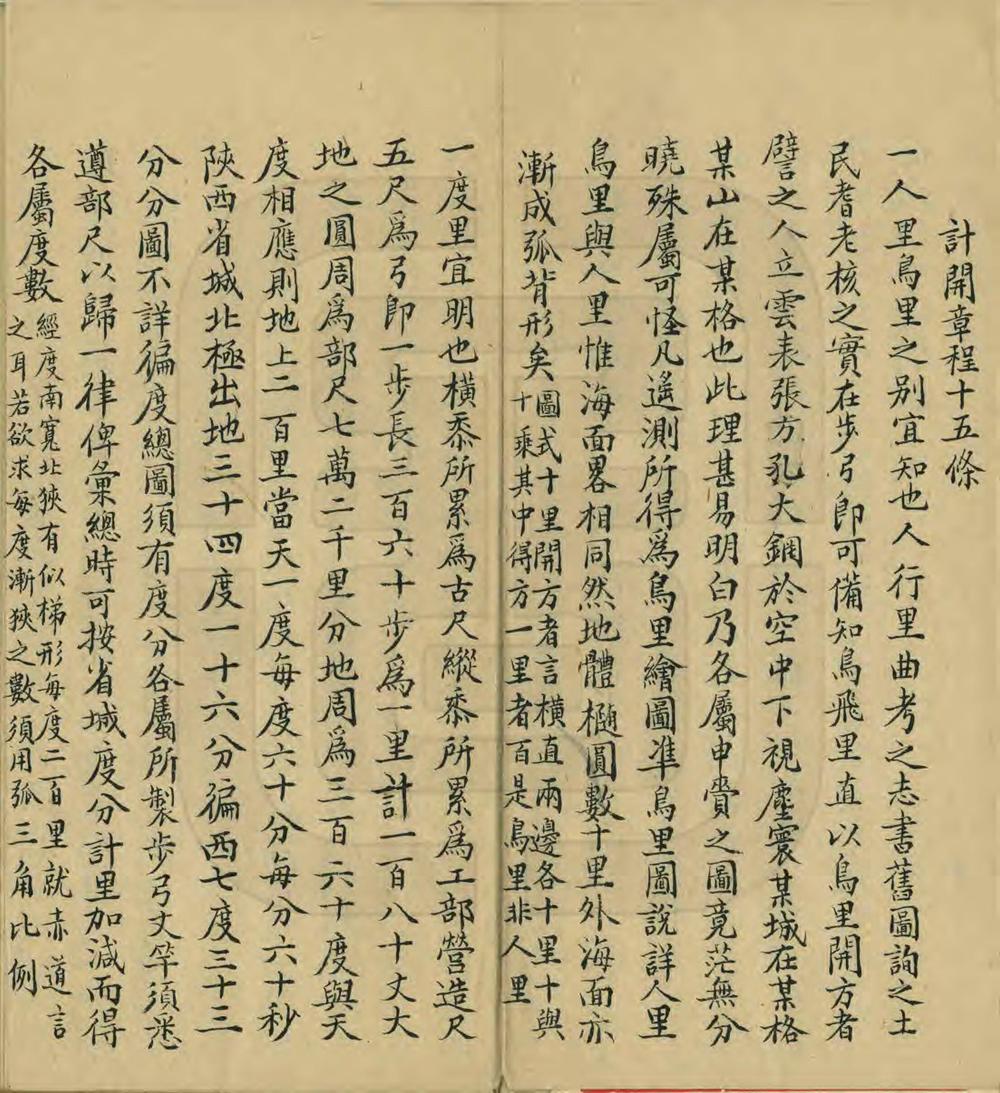 計開章程十五條
一人里鳥里之别宜知也人行里曲考之志書舊圖詢之土
民耆老核之實在步弓即可備知鳥飛里直以鳥里開方者
譬之人立雲表張方孔大網於空中下視塵寰某城在某格
某山在某格也此理甚易明白乃各屬申賫之圖竟茫無分
曉殊屬可怪凡遙測所得爲鳥里繪圖凖鳥里圖說詳人里
鳥里與人里惟海面畧相同然地體橢圓數十里外海面亦
漸成弧背形矣圖式十里開方者言橫直兩邊各十里十與
十乘其中得方一里者百是鳥里非人里
一度里宜明也橫黍所累爲古尺縱黍所累爲工部營造尺
五尺爲弓即一步長三百六十步爲一里計一百八十丈大
地之圓周爲部尺七萬二千里分地周爲三百六十度與天
度相應則地上二百里當天一度每度六十分每分六十秒
陝西省城北極出地三十四度一十六分徧西七度三十三
分分圖不詳徧度總圖須有度分各屬所製步弓丈竿須悉
遵部尺以歸一律俾彙總時可按省城度分計里加減而得
各屬度數經度南寬北狹有似梯形每度二百里就赤道言
之耳若欲求每度漸狹之數須用弧三角比例